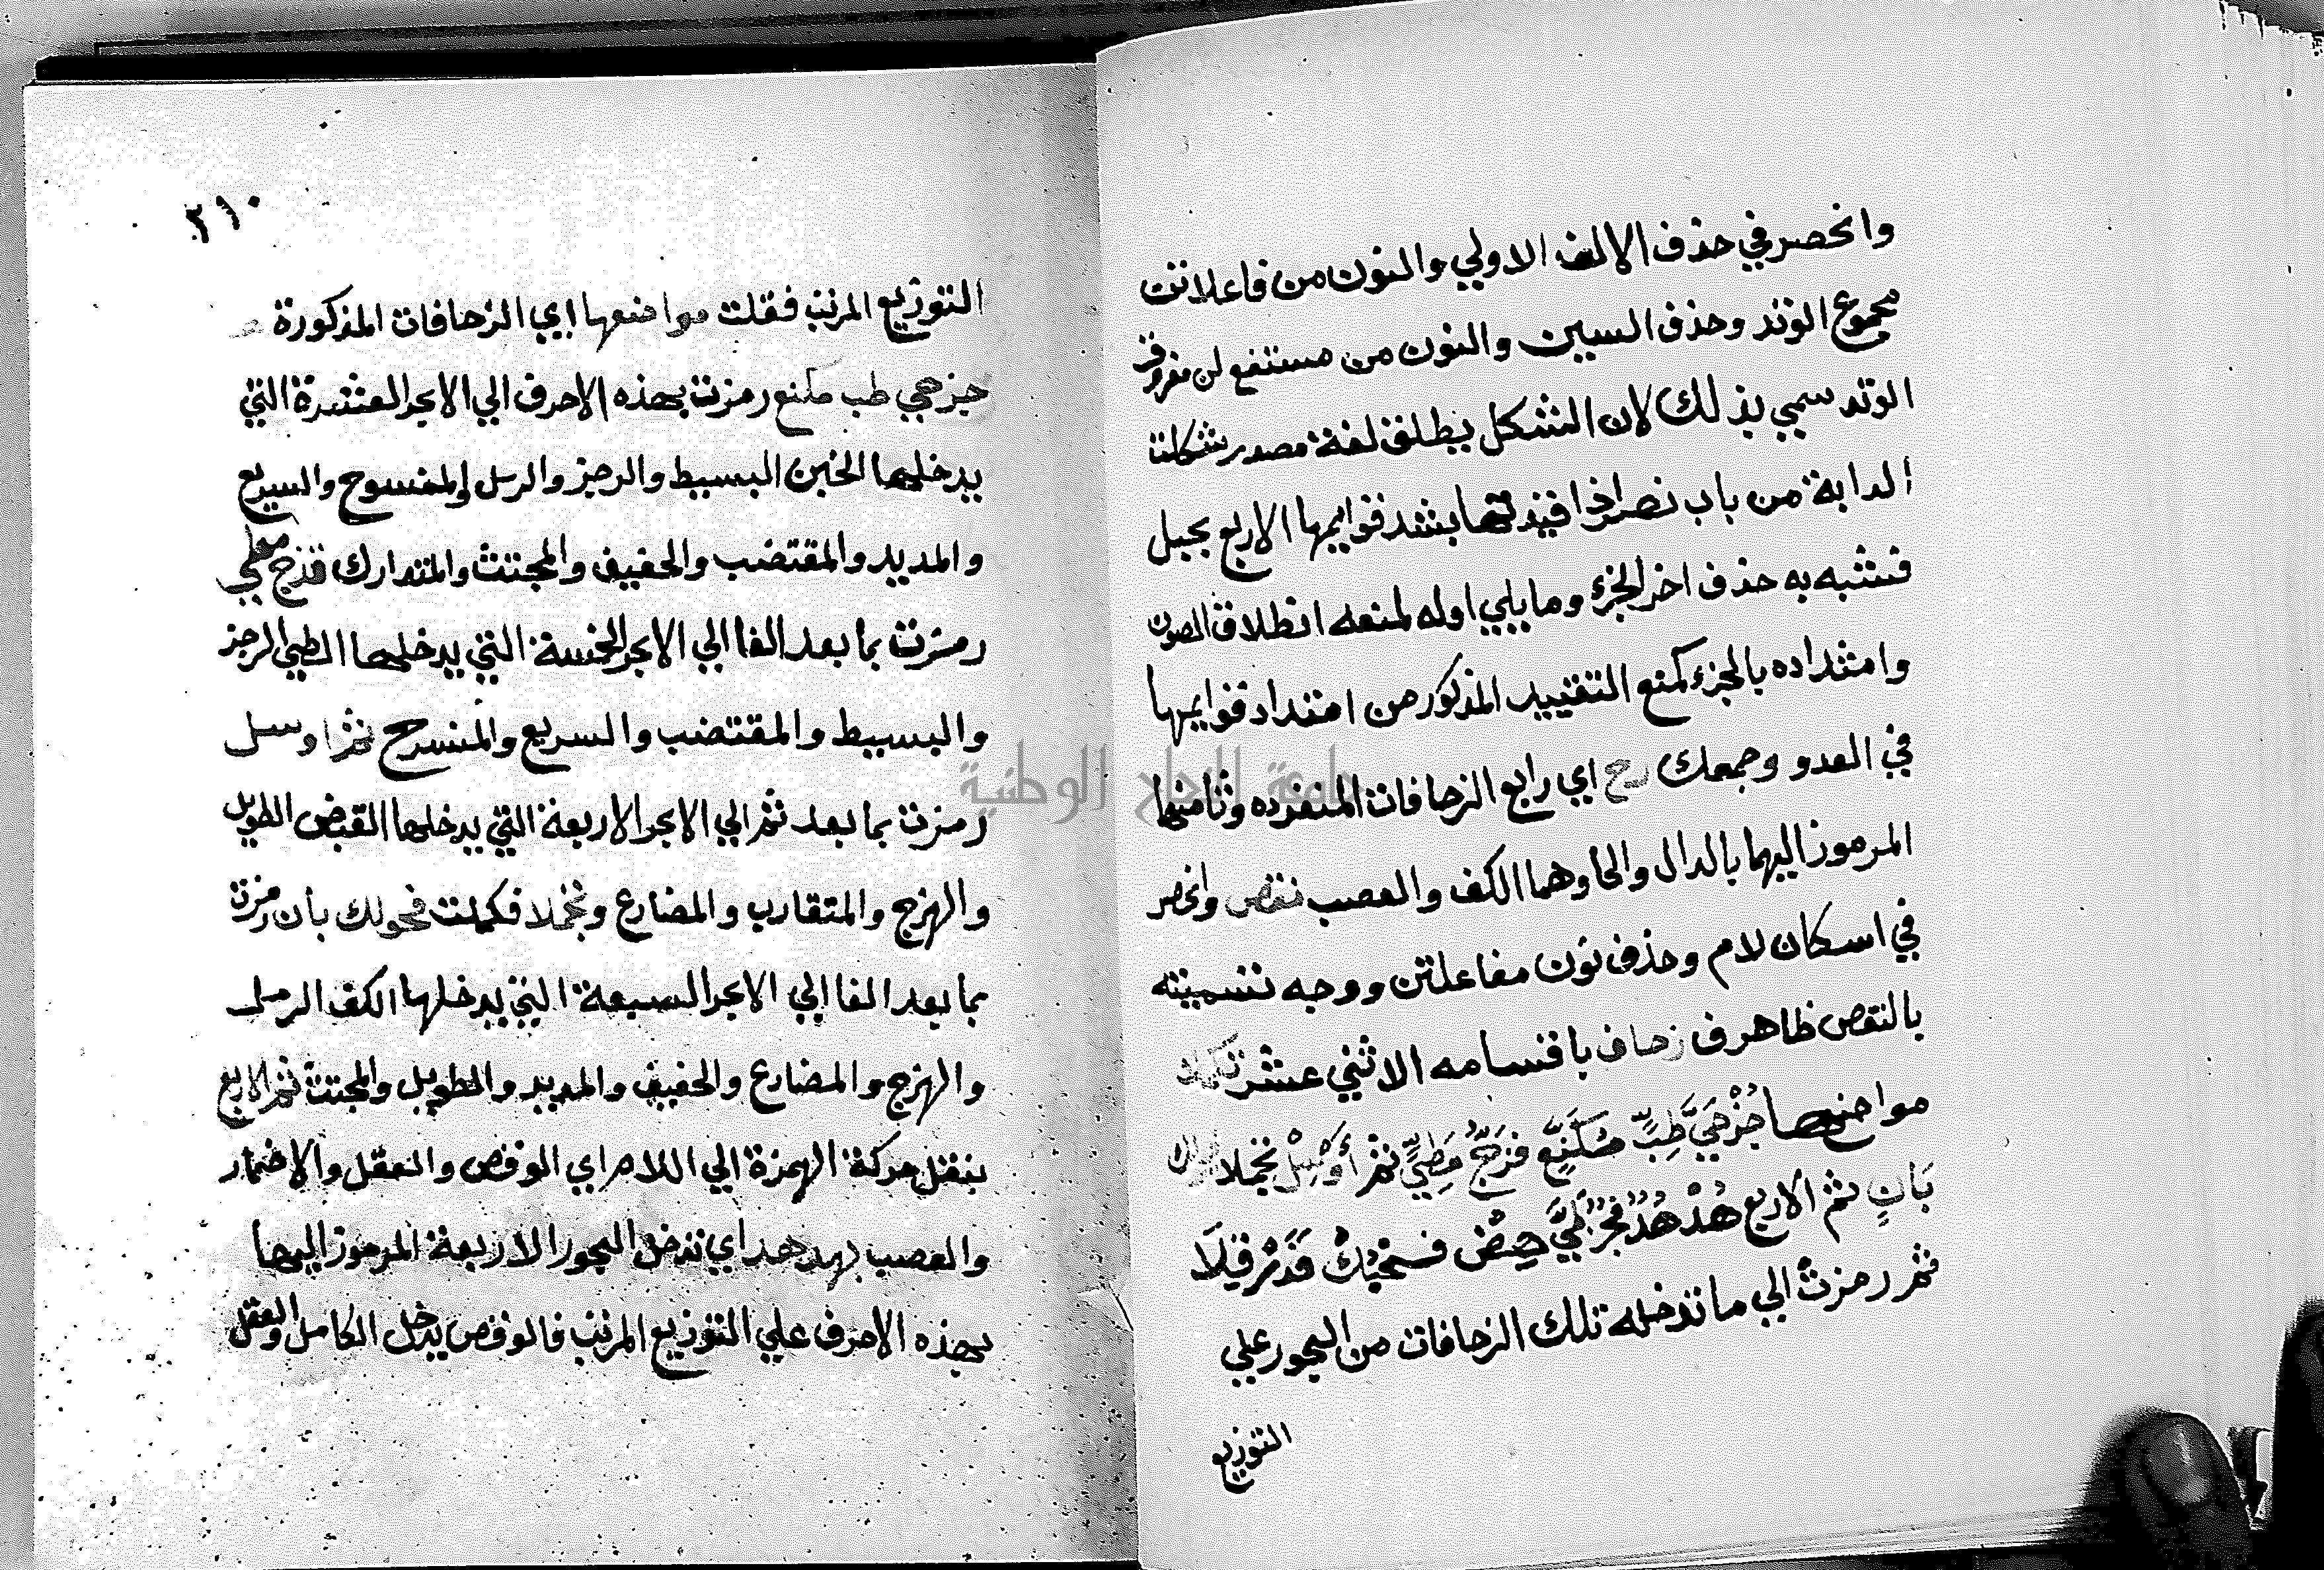 وانحصر في حذف الالف الاولي والنون من فاعلاتن
مجموع الوتد وحذف السين والنون من مستفع لن مفروق
الوتد سمي بذلك لان الشكل يطلق لغة مصدر شكلت
الدابة من باب نصر اذا قيدتها بشد قوايمها الاربع بحبل
فشبه به حذف اخر الجزء وما يلي اوله لمنعه انطلاق الصوت
وامتداده بالجزء كمنع التقييد المذكور من امتداد قوايمها
في العدو وجمعك رح اي رابع الزحافات المنفرده وثامنها
المرموز اليهما بالدال والحا وهما الكف والعصب نقص وانحصر
في اسكان لام وحذف نون مفاعلتن ووجه تسميته
بالنقص ظاهر ف زحاف باقسامه الاثني عشر
مواضعها
بان ثم الاربع هد
ثم رمزت الي ما تدخله تلك الزحافات من البحور علي
التوزيع
٢١٠
التوزيع المرتب فقلت مواضعها اي الزحافات المذكورة
جزهي طب مكنع رمزت بهذه الاحرف الي الابحر العشرة التي
يدخلها الخبن البسيط والرجز والرمل والمنسرح والسريع
والمديد والمقتضب والخفيف والمجتث والمتدارك فزج مطي
رمزت بما بعد الفا الي الابحر الخمسة التي يدخلها الطي الرجز
والبسيط والمقتضب والسريع والمنسرح ثم اوسل
رمزت بما بعد ثم الي الابحر الاربعة التي يدخلها القبض الطويل
والهزج والمتقارب والمضارع و فكملت فحولك بأن رمزت
بما بعد الفا الي الابحر السبعة التي يدخلها الكف الرمل
والهزج والمضارع والخفيف والمديد والطويل والمجتث ثم الاربع
بنقل حركة الهمزة الي اللام اي الوقص والعقل والاضمار
والعصب بهدهد اي تدخل البحور الاربعة المرموز اليها
بهذه الاحرف علي التوزيع المرتب فالوقص يدخل الكامل والعقل
جامعة النجاح الوطنية